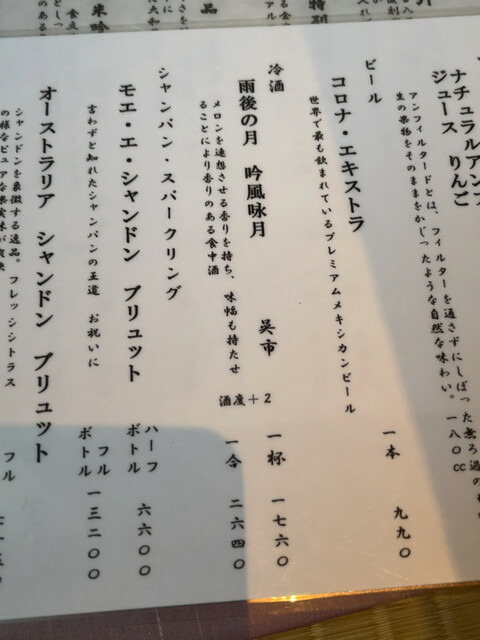 ナチュラルアンフ
ジュース りんご
アンフィルタードとは、フィルターを通さずにしぼった無ろ過の
生の果物をそのままをかじったような自然な味わい。 一八〇cc
ビール
コロナ・エキストラ
世界で最も飲まれているプレミアムメキシカンビール 一本 九九〇
冷酒
雨後の月 吟風咏月 呉市 一杯 一七六〇
メロンを連想させる香りを持ち、味幅も持たせ
ることにより香りのある食中酒 酒度＋2 一合 二六四〇
シャンパン・スパークリング
モエ・エ・シャンドン ブリュット ハーフボトル 六六〇〇
言わずと知れたシャンパンの王道 お祝いに フルボトル 一三二〇〇
オーストラリア シャンドン ブリュット
シャンドンを象徴する逸品。フレッシュシトラス フル
の様なピュアな果実味が爽快